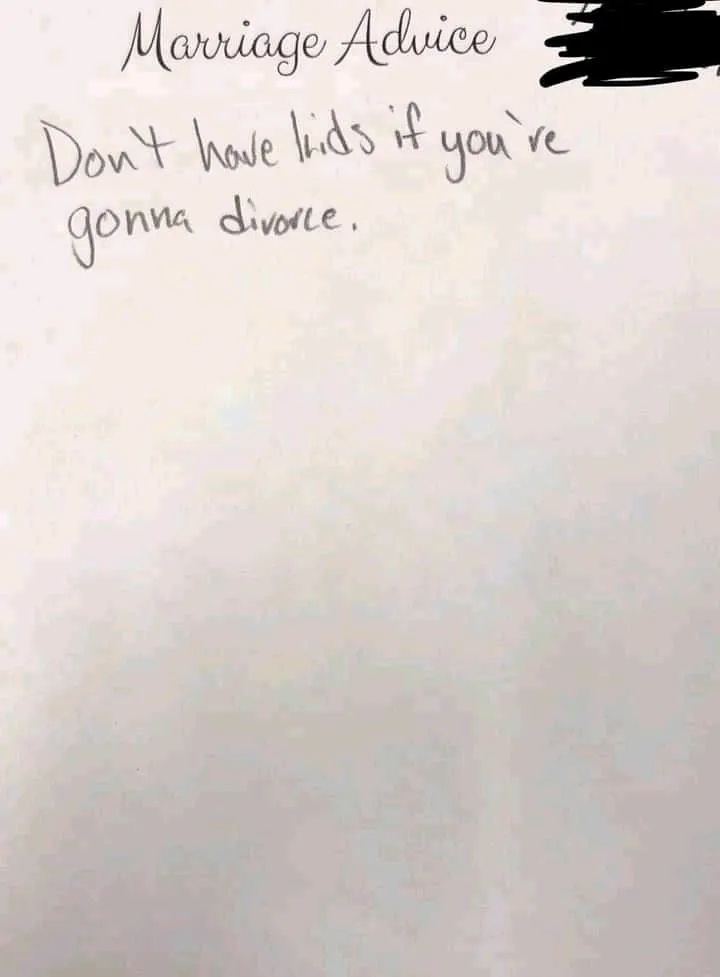 Marriage Advice
Don't have kids if you're
gonna divorce.